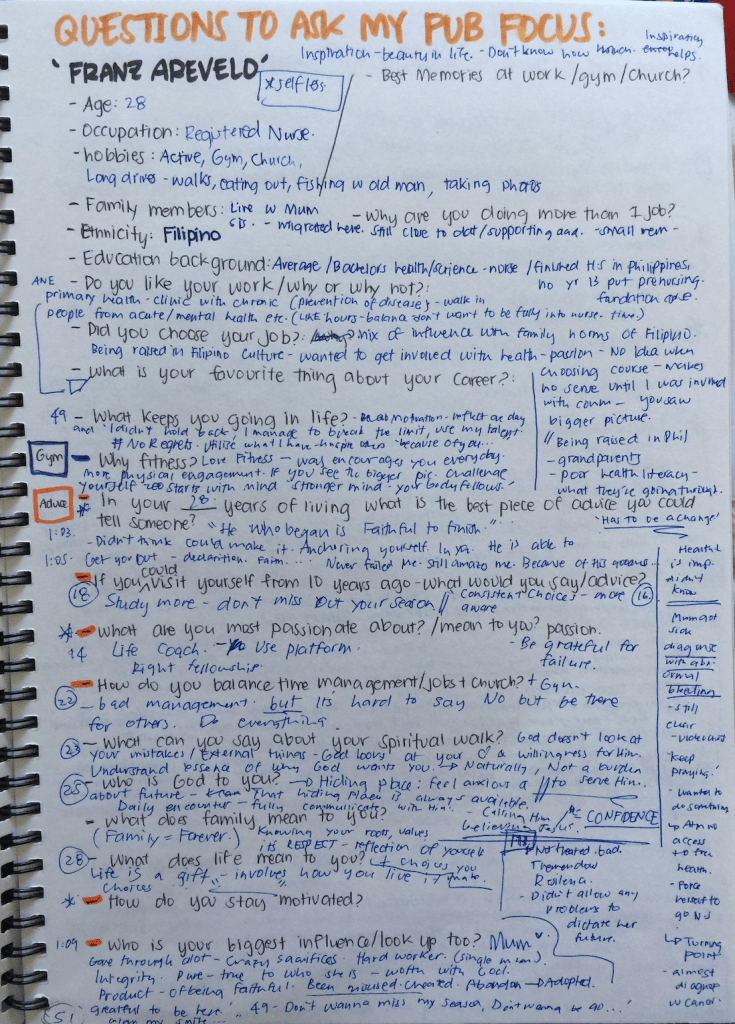 QUESTIONS TO ASK MY PUB FOCUS:
Inspiration
Inspiration - beauty in life. - Don't know how helps.
'FRANZ AREVELO'
*selfless
- Best Memories at work/gym/church?
- Age: 28
- Occupation: Registered Nurse.
- hobbies: Active, Gym, Church,
Long drives - walks, eating out, fishing w old man, taking photos
- Family members: Live w Mum
- Why are you doing more than 1 job?
- Ethnicity: Filipino
- migrated here. Still close to dad/supporting dad.
- Education background: Average/Bachelors health/science - nurse/finished H.S in Philippines,
no yr 13 put prenursing.
- Do you like your work/why or why not?:
primary health - clinic with chronic (prevention of disease) - walk in
people from acute/mental health etc. (Like hours - balance don't want to be fully into nurse. time.)
- Did you choose your job?: mix of influence with family norms of Filipino.
Being raised in Filipino Culture - wanted to get involved with health - passion - No Idea when
choosing course - makes
no sense until I was involved
with comm - you saw
bigger picture.
// Being raised in Phil
- grandparents
- poor health literacy -
what they're going through.
- What is your favourite thing about your career?:
49 - What keeps you going in life? - motivation - reflect on day
and 'I didn't hold back, I manage to break the limit, use my talent.
# No Regrets. Utilise what I have - Inspire others 'because of you...'
Gym
- Why fitness? Love Fitness - way encourages you everyday.
more physical engagement. If you see the bigger pic. challenge
yourself starts with mind stronger mind - your body follows.'
Advice
* - In your 28 years of living what is the best piece of advice you could
tell someone? "He who began is Faithful to finish."
'Has to be a change'
1:03
- Didn't think could make it. Anchoring yourself. He is able to
1:05 Get you out - declaration. Faith.... Never failed me - still amaze me. Because of His goodness...
- If you could visit yourself from 10 years ago - what would you say/advice?
18 Study more - don't miss out your season // Consistent choices - more aware 16
* - What are you most passionate about?/mean to you? passion.
14 Life Coach. - use platform.
Right fellowship.
- Be grateful for
failure.
- How do you balance time management/jobs + church? + Gym.
22 - bad management. but its hard to say No but be there
for others. Do everything.
23 - What can you say about your spiritual walk? God doesn't look at
your mistakes/External things - God looks at your ♡ & willingness for Him.
Understand essence of why God wants you. → Naturally, Not a burden
// to serve Him.
25 - who is God to you? → Hiding place: feel anxious a
about future - That hiding place is always available.
Daily encounter - fully communicate with Him.
- Calling Him
believing Jesus.
= CONFIDENCE
- What does family mean to you?
(Family = Forever.) Knowing your roots, values
is RESPECT - reflection of yourself
28 - What does life mean to you? + choices you make.
Life is a gift - involves how you live it
Choices
* - How do you stay motivated?
- Not treated bad.
Tremendous
Resilience.
- Didn't allow any
problems to
dictate her
future.
Health
is imp.
didn't
know
Mum got
sick
diagnose
with abn-
ormal
bleeding
- still
clear
'Keep
praying.'
- wanted to
do something
→ no
access
to free
health.
- Force
herself to
go NZ
→ Turning
point
- almost
diagnose
w cancer
1:09 - Who is your biggest influence/look up too? Mum ♡
Gone through alot - Crazy sacrifices. Hard worker. (single mum).
Integrity. Pure - true to who she is - worth with God.
Product - of being faithful. Been misused - cheated. Abandon → Adopted.
51 greatful to be here. 49 - Don't wanna miss my season, Don't wanna be 40...'